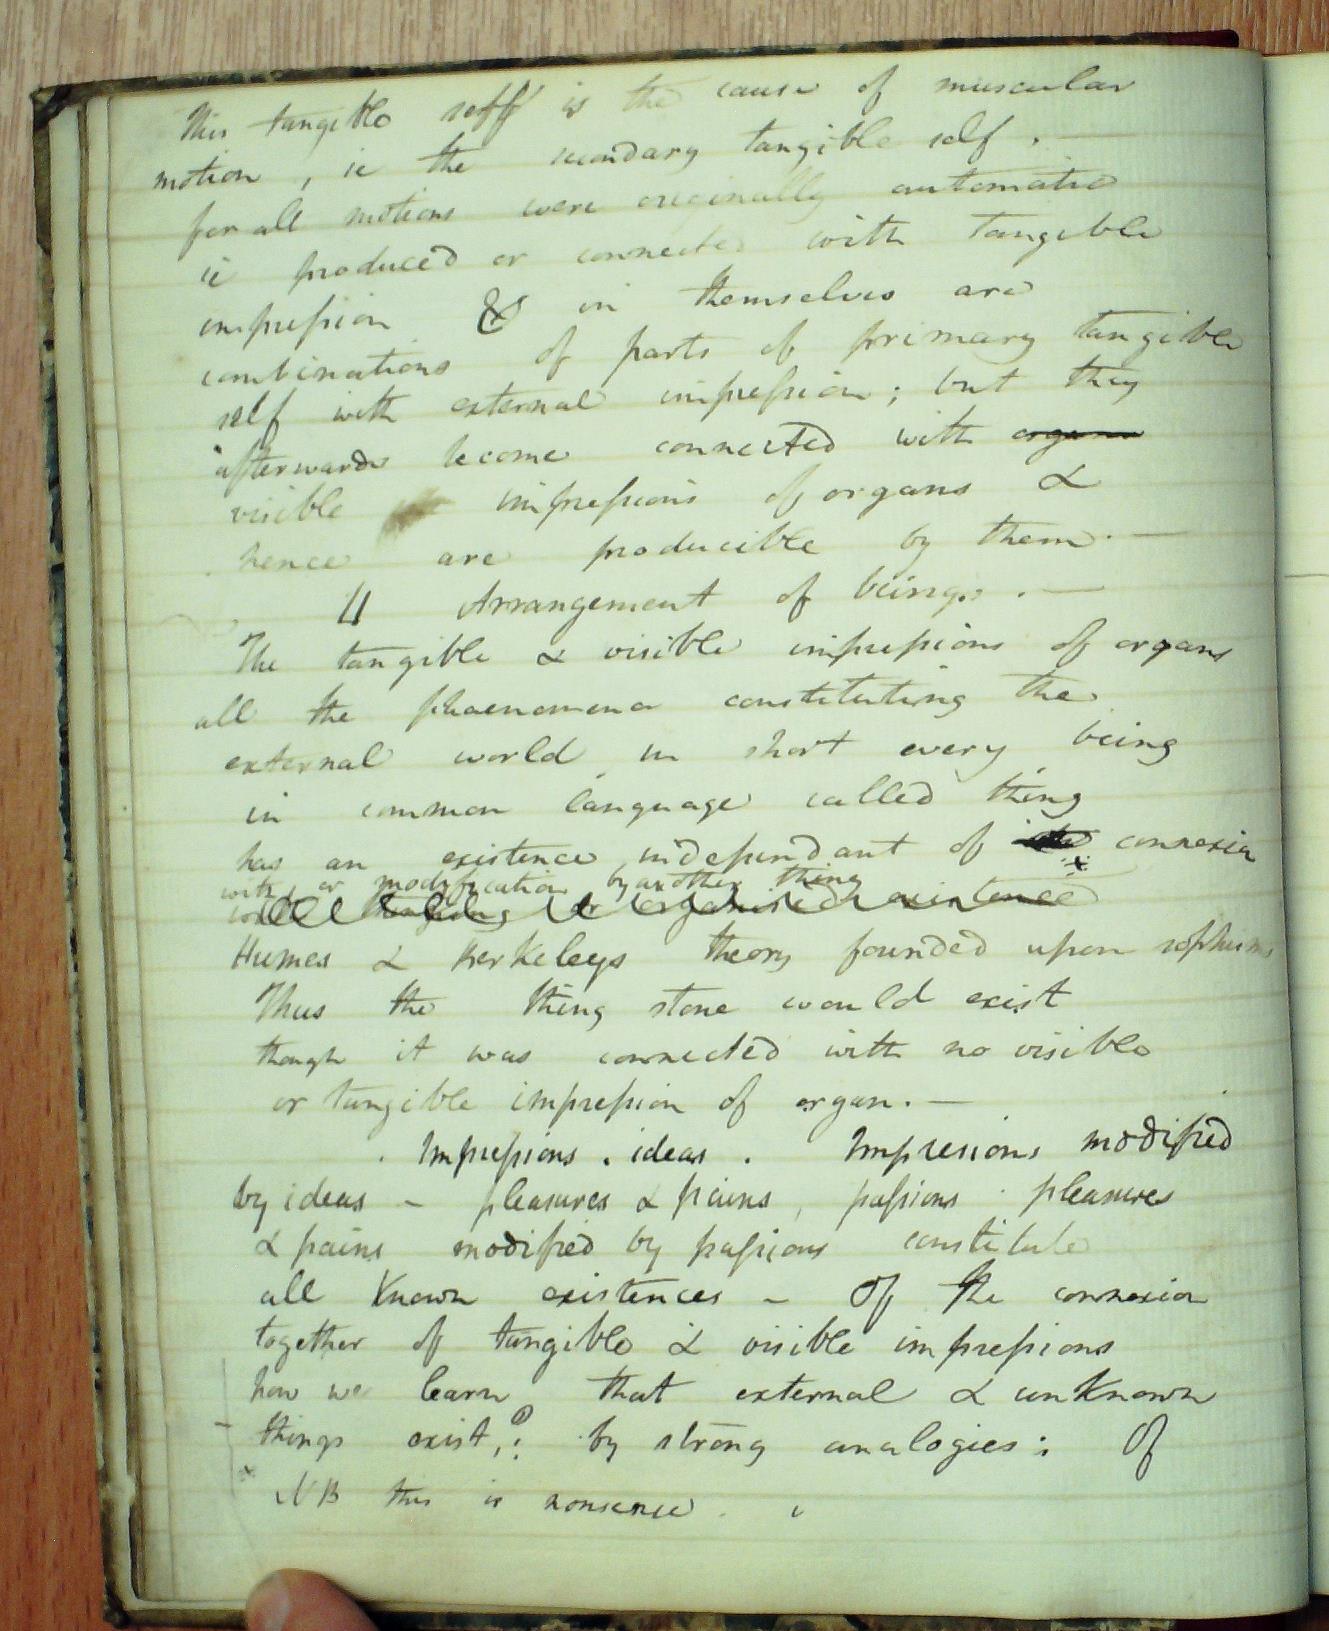 This tangible self is the cause of muscular
motion, ie the secondary tangible self.
for all motions were originally automatic
ie produced or connected with tangible
impression & in themselves are
combinations of parts of primary tangible
self with external impression; but they
afterwards become connected with organs
visible impressions of organs &
hence are producible by them. —
11 Arrangement of beings. —
The tangible & visible impressions of organs
all the phaenomena constituting the
external world in short every being
in common language called thing
has an existence independant of connexion
with or modification by another thing
all thinging or organised existence
Humes & Berkeleys theory founded upon sophisms
Thus the thing stone would exist
though it was connected with no visible
or tangible impression of organ. —
Impressions. ideas. Impresions modified
by ideas – pleasures & pains, passions. pleasures
& pains modified by passions constitute
all known existences – Of the connexion
together of tangible & visible impressions
how we learn that external & unknown
things exist,? by strong analogies; Of
x NB this is nonsense.